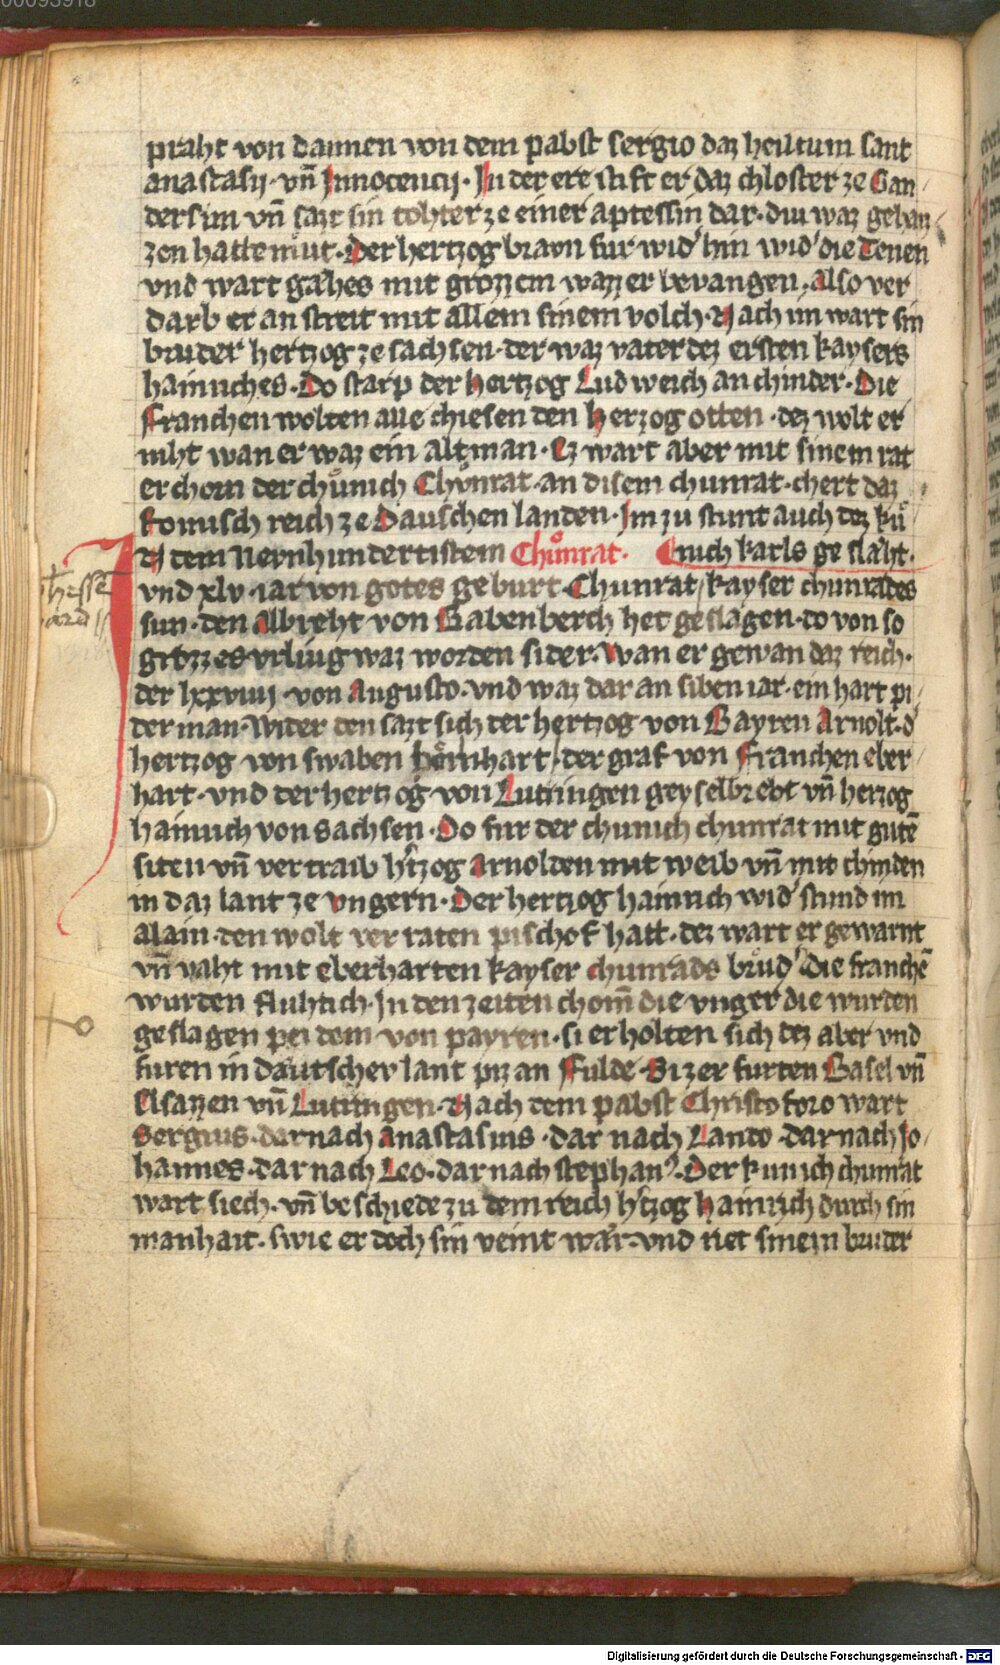 00093918
praht von dannen von dem pabst sergio daz heiltum sant
anastasij · vn̄ Innocencij · In der ere stift er daz chloster ze Gan
dersim vn̄ sazt sin tohter ze einer aptessin dar · diu waz gehai
zen hattemůt · Der hertzog bravn fur wid' hin wid' die Tenen
vnd wart gähes mit grozzem wazzer bevangen · also ver
darb er an streit mit allem sinem volch · Nach im wart sin
bruder hertzog ze sachsen · der waz vater dez ersten kaysers
hainriches · Do starp der hertzog Ludweich an chinder · Die
Franchen wolten alle chiesen den herzog otten · dez wolt er
niht wan er waz ein altman · Ez wart aber mit sinem rat
erchorn der chůnich Chůnrat · an disem chunrat · chert daz
Romisch reich ze Dauschen landen · Im zu stunt auch dez ků
N dem Nevnhundertistem Chůnrat · Cnich karls geslaht ·
vnd xlv · iar von gotes geburt · Chunrat kayser chunrades
sun · den albreht von Babenberch het geslagen · do von so
grözzes vrliug waz worden sider · wan er gewan daz reich ·
der lxxviiij · von Augusto · vnd waz dar an siben iar · ein hart pi
der man · Wider den sazt sich der hertzog von Bayren Arnolt · d'
hertzog von swaben bernhart · der graf von Franchen eber
hart · vnd der hertzog von Lutringen geyselbreht vn̄ herzog
hainrich von Sachsen · Do fur der chunich chunrat mit gutē
siten vn̄ vertraib h'tzog Arnolden mit weib vn̄ mit chinden
in daz lant ze vngern · Der hertzog hainrich wid' stund im
alain · den wolt verraten pischof hatt · dez wart er gewarnt
vn̄ vaht mit eberharten kayser chunrads brůd' die franchē
wurden fluhtich · In den zeiten chom̄ die vnger die wurden
geslagen pei dem von payren · si erholten sich dez aber vnd
furen in dautscher lant piz an Fulde · Si zerfurten Basel vn̄
Elsazzen vn̄ Lutringen · Nach dem pabst Christoforo wart
Sergius · darnach anastasius · dar nach Lando · darnach Jo
hannes · dar nach Leo · dar nach stephan⁹ · Der kunich chunrat
wart siech · vn̄ beschiede zu dem reich h'tzog hainrich durch sin
manhait · swie er doch sin veint wär · vnd riet sinem bruder
Digitalisierung gefördert durch die Deutsche Forschungsgemeinschaft - DFG